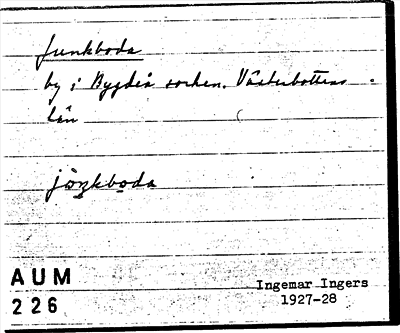 Junkboda
by i Bygdeå socken. Västerbottens
län
jòŋkboda
AUM
226
Ingemar Ingers
1927-28